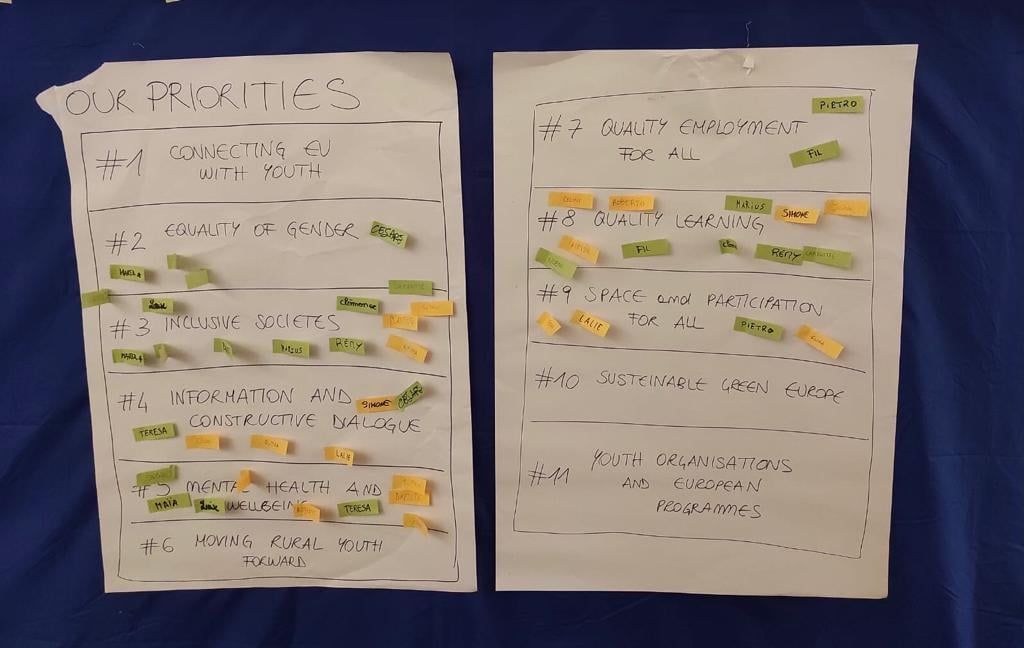 OUR PRIORITIES
#1 CONNECTING EU
WITH YOUTH
#2 EQUALITY OF GENDER CESARE
MARIA
Louise clémence
#3 INCLUSIVE SOCIETES
MARIA MARIUS REMY
#4 INFORMATION AND SIMONE CESARE
CONSTRUCTIVE DIALOGUE
TERESA
LALIE
#5 MENTAL HEALTH AND
MAÏA WELLBEING TERESA
#6 MOVING RURAL YOUTH
FORWARD
PIETRO
#7 QUALITY EMPLOYMENT
FOR ALL FIL
ROBERTO MARIUS SIMONE
#8 QUALITY LEARNING
FIL REMY CHARLOTTE
#9 SPACE and PARTICIPATION
LALIE FOR ALL PIETRO
#10 SUSTEINABLE GREEN EUROPE
#11 YOUTH ORGANISATIONS
AND EUROPEAN
PROGRAMMES